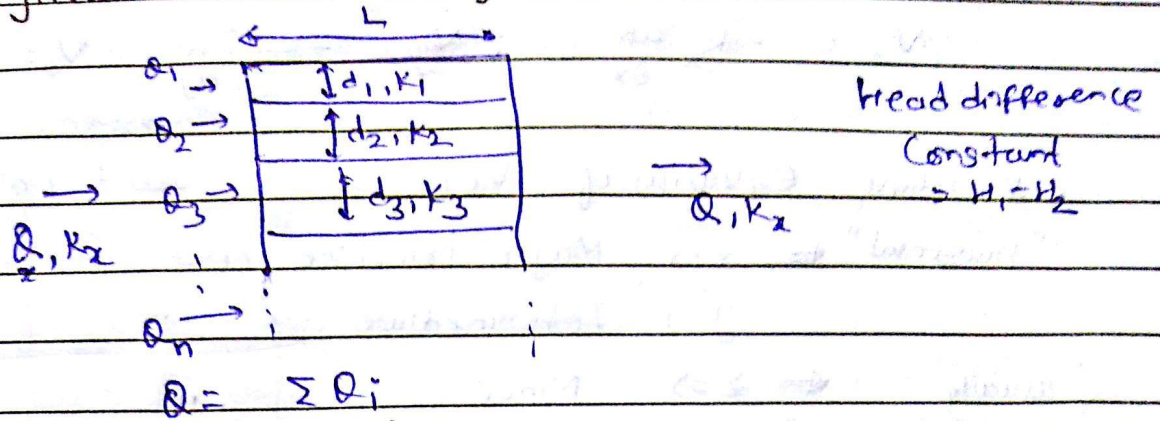 L
Q1 → d1, K1
Q2 → d2, K2
Q3 → d3, K3
Qx, Kx
Qn →
→ Q, Kx
Head difference
Constant
= H1 - H2
Q = Σ Qi